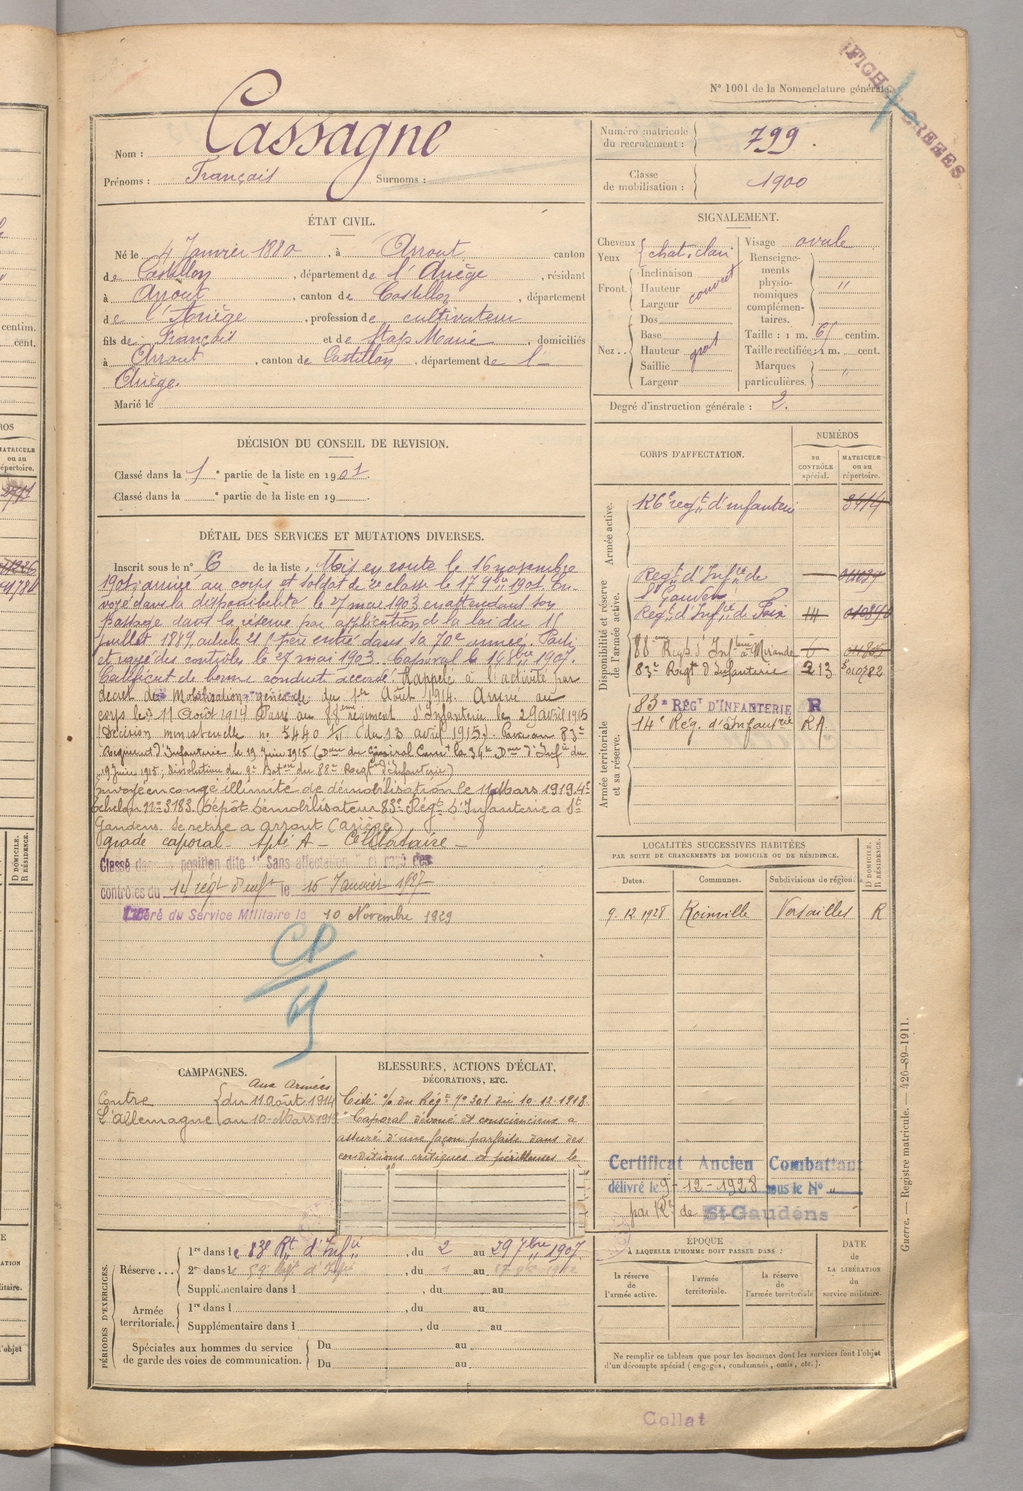 FICHES CREEES
N° 1001 de la Nomenclature générale.
Nom : Cassagne
Prénoms : François Surnoms :
Numéro matricule du recrutement : 799.
Classe de mobilisation : 1900
ÉTAT CIVIL.
Né le 4 Janvier 1880, à Arrout, canton
de Castillon, département de l'Ariège, résidant
à Arrout, canton de Castillon, département
de l'Ariège, profession de cultivateur
fils de François et de Stap Marie, domiciliés
à Arrout, canton de Castillon, département de l'
Ariège.
Marié le
SIGNALEMENT.
Cheveux
Yeux
chat. clair
Front. Inclinaison
Hauteur
Largeur
couvert
Nez.. Dos
Base
Hauteur
Saillie
Largeur
gros
Visage ovale
Renseignements physionomiques complémentaires. "
Taille : 1 m. 61 centim.
Taille rectifiée : 1 m. cent.
Marques particulières. "
Degré d'instruction générale : 2.
DÉCISION DU CONSEIL DE REVISION.
Classé dans la 1e partie de la liste en 1901.
Classé dans la e partie de la liste en 19
DÉTAIL DES SERVICES ET MUTATIONS DIVERSES.
Inscrit sous le n° 6 de la liste, Mis en route le 16 novembre
1901, arrivé au corps et soldat de 2e classe le 17 9bre 1901. En-
voyé dans la disponibilité le 27 mai 1903 en attendant son
passage dans la réserve par application de la loi du 15
juillet 1889, article 21, père entré dans sa 70e année. Parti
et rayé des contrôles le 27 mai 1903. Caporal le 14 8bre 1907.
Certificat de bonne conduite accordé. Rappelé à l'activité par
décret de Mobilisation générale du 1er Août 1914. Arrivé au
corps le 11 Août 1914. Passé au 88e régiment d'Infanterie le 29 avril 1915
(décision ministérielle n° 5440 (du 13 avril 1915). Passé au 83e
Régiment d'Infanterie le 19 juin 1915
19 juin 1915, Dissolution du 9e Baton du 88e Reigt d'Infanterie)
envoyé en congé illimité de démobilisation le 11 Mars 1919. 4e
échelon n° 3183. (Dépôt démobilisateur 83e Régt d'Infanterie à St
Gaudens. Se retire à Arrout (Ariège)
grade caporal - Apte A - Célibataire -
Classé dans la position dite "Sans affectation" et rayé des
contrôles du 14 régt d'inf. le 15 Janvier 1927
Libéré du Service Militaire le 10 Novembre 1929
CP
65
CORPS D'AFFECTATION.
NUMÉROS
au CONTRÔLE spécial.
MATRICULE ou au répertoire.
Armée active.
126e regt d'infanterie 3414
Disponibilité et réserve de l'armée active.
Regt d'Infie de St Gaudens
Regt d'Infie de Foix
88eme Regt d'Infrie Mirande
83e Regt d'Infanterie 213 010782
Armée territoriale et sa réserve.
83e RÉGt D'INFANTERIE R
14e Rég. d'Infantrie RA
LOCALITÉS SUCCESSIVES HABITÉES
PAR SUITE DE CHANGEMENTS DE DOMICILE OU DE RÉSIDENCE.
Dates. Communes. Subdivisions de région. D DOMICILE. R RÉSIDENCE.
9.12.1928 Roinville Versailles R
Certificat Ancien Combattant
délivré le 9-12-1928 sous le N° "
par Rt de St-Gaudens
CAMPAGNES.
Aux Armées
Contre
L'Allemagne
du 11 Août 1914
au 10 Mars 1919
BLESSURES, ACTIONS D'ÉCLAT,
DÉCORATIONS, ETC.
Cité o/ du Régt n° 301 du 10-12-1918
"Caporal dévoué et consciencieux a
assuré d'une façon parfaite dans des
conditions critiques et périlleuses le
PÉRIODES D'EXERCICES.
Réserve... 1re dans le 83e Rt d'Infie, du 2 au 29 7bre 1907.
2e dans le 59e Regt d'Infie, du 1 au 17
Supplémentaire dans l , du au
Armée territoriale. 1re dans l , du au
Supplémentaire dans l , du au
Spéciales aux hommes du service de garde des voies de communication. Du au
Du au
ÉPOQUE
À LAQUELLE L'HOMME DOIT PASSER DANS :
la réserve de l'armée active.
l'armée territoriale.
la réserve de l'armée territoriale
DATE de LA LIBÉRATION du service militaire.
Ne remplir ce tableau que pour les hommes dont les services font l'objet
d'un décompte spécial (engagés, condamnés, omis, etc.).
Guerre. — Registre matricule. — 426-89-1911.
Collat